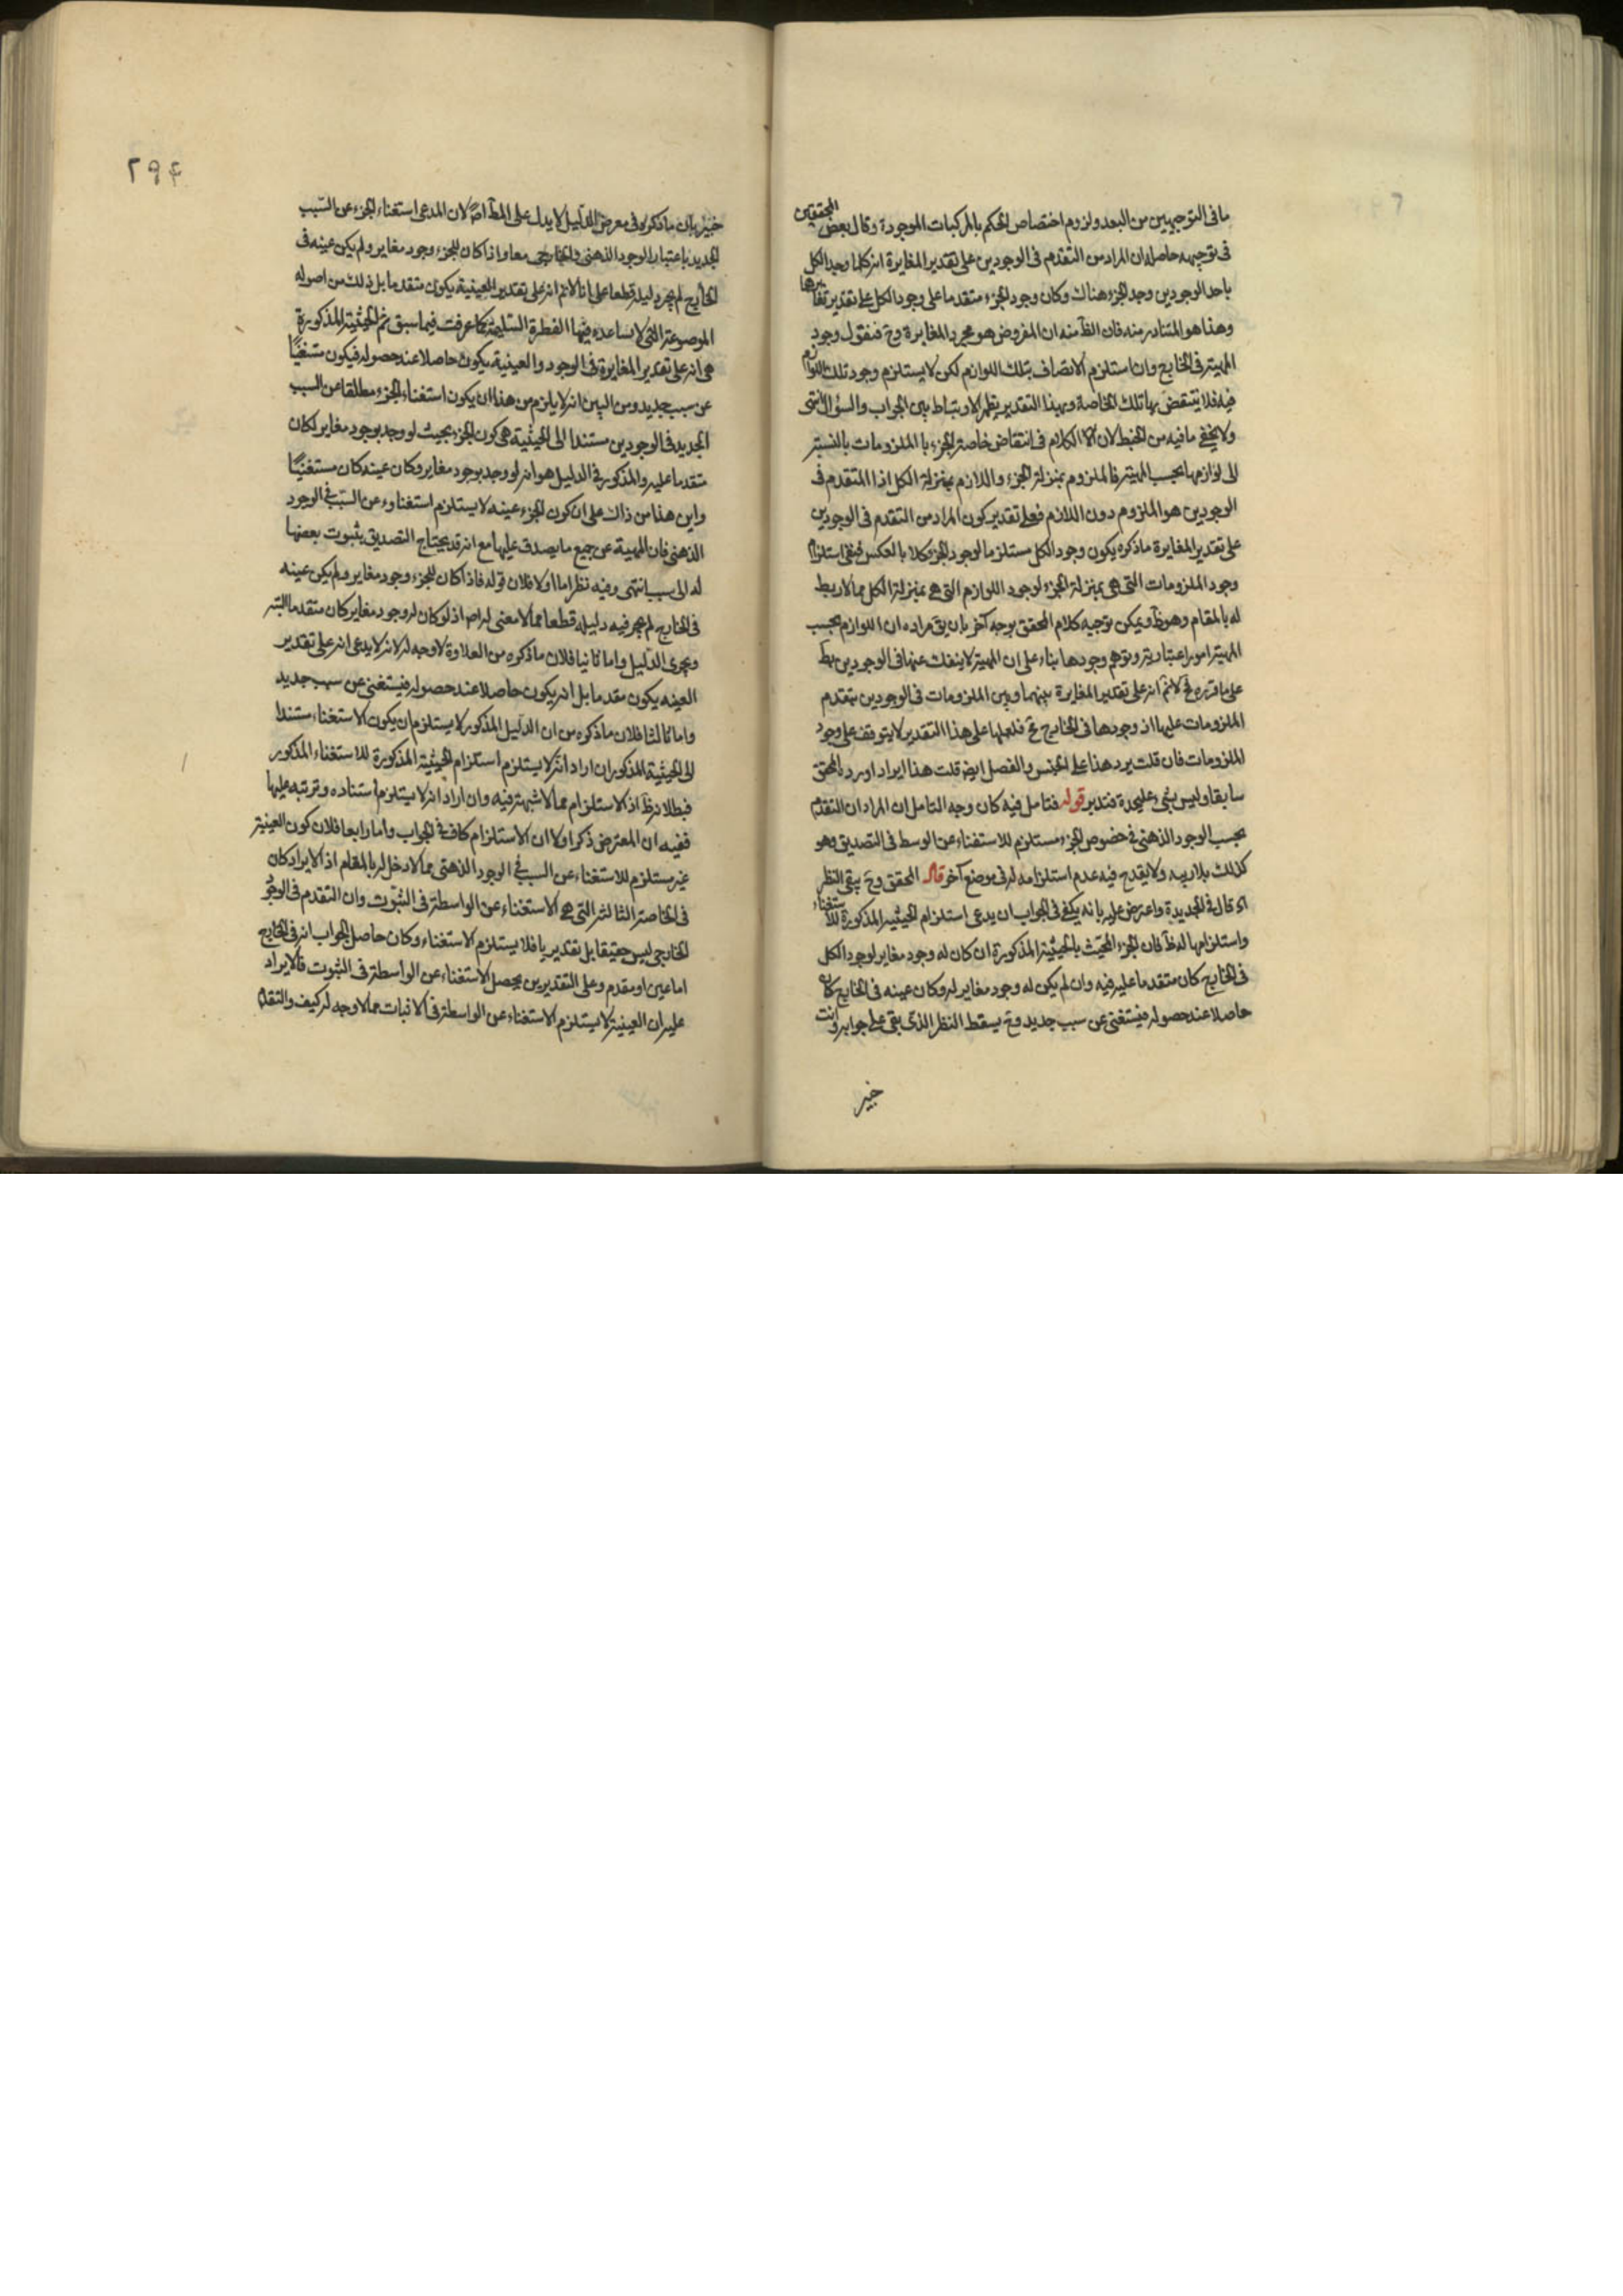 ما فى التوجيهين من البعد ولزوم اختصاص الحكم بالمركبات الموجودة وقال بعض المحققين
فى توجيهه حاصله ان المراد من التقدم فى الوجودين على تقدير المغايرة انه كلما وجد الكل
باحد الوجودين وجد الجزء هناك وكان وجود الجزء متقدما على وجود الكل على تقدير تغايرها
وهذا هو المتبادر منه فان الظ منه ان المفروض هو مجرد المغايرة وح فنقول وجود
المهية فى الخارج وان استلزم الاتصاف بتلك اللوازم لكن لا يستلزم وجود تلك اللوازم
فيه فلا ينتقض بها تلك الخاصة وبهذا التقدير يظهر الارتباط بين الجواب والسؤال انتهى
ولا يخفى ما فيه من الخبط لان الكلام فى انتقاض خاصة الجزء با الملزومات بالنسبة
الى لوازمها بحسب المهية فالملزوم بمنزلة الجزء واللازم بمنزلة الكل اذا المتقدم فى
الوجودين هو الملزوم دون اللازم فعلى تقدير كون المراد من التقدم فى الوجودين
على تقدير المغايرة ما ذكره يكون وجود الكل مستلزما لوجود الجزء لا بالعكس فنفى استلزام
وجود الملزومات التى هى بمنزلة الجزء لوجود اللوازم التى هى بمنزلة الكل مما لا ربط
له بالمقام وهو ظ ويمكن توجيه كلام المحقق بوجه آخر بان يق مراده ان اللوازم بحسب
المهية امور اعتبارية وتوهم وجودها بناء على ان المهية لا ينفك عنها فى الوجودين بط
على ما قرره فح لانم انه على تقدير المغايرة بينهما وبين الملزومات فى الوجودين يتقدم
الملزومات عليها اذ وجودها فى الخارج مح فلعلها على هذا التقدير لا يتوقف على وجود
الملزومات فان قلت يرد هذا على الجنس والفصل ايضا قلت هذا ايراد اورده المحقق
سابقا وليس بشىء عليحدة فتدبر قوله فتامل فيه كان وجه التامل ان المراد ان التقدم
بحسب الوجود الذهنى فى خصوص الجزء مستلزم للاستغناء عن الوسط فى التصديق وهو
كذلك بلا ريبه ولا يقدح فيه عدم استلزامه له فى موضع آخر قال المحقق وح يبقى النظر
اه قال فى الجديدة واعترض عليه بانه يكفى فى الجواب ان يدعى استلزام الحيثية المذكورة للاستغناء
واستلزامها له ظ فان الجزء المحيث بالحيثية المذكورة ان كان له وجود مغاير لوجود الكل
فى الخارج كان متقدما عليه فيه وان لم يكن له وجود مغاير له وكان عينه فى الخارج كان
حاصلا عند حصوله فيستغنى عن سبب جديد وح يسقط النظر الذى بقى على جوابه وانت
خبير
٢٩٤
خبير بان ما ذكره فى معرض الدليل لا يدل على المط اصلا لان المدعى استغناء الجزء عن السبب
الجديد باعتبار الوجود الذهنى والخارجى معا واذا كان للجزء وجود مغاير ولم يكن عينه فى
الخارج لم يجر دليله قطعا على انا لانم انه على تقدير العينية يكون متقدما بل ذلك من اصوله
الموضوعة التى لا يساعده فيها الفطرة السليمة كما عرفت فيما سبق نعم الحيثية المذكورة
هى انه على تقدير المغايرة فى الوجود والعينية يكون حاصلا عند حصوله فيكون مستغنيا
عن سبب جديد ومن البين انه لا يلزم من هذا ان يكون استغناء الجزء مطلقا عن السبب
الجديد فى الوجودين مستندا الى الحيثية هى كون الجزء بحيث لو وجد بوجود مغاير لكان
متقدما عليه والمذكور فى الدليل هو انه لو وجد بوجود مغاير وكان عينه كان مستغنيا
واين هذا من ذاك على ان كون الجزء عينه لا يستلزم استغناؤه عن السبب فى الوجود
الذهنى فان المهية عن جميع ما يصدق عليها مع انه قد يحتاج التصديق بثبوت بعضها
له الى سبب انتهى وفيه نظر اما اولا فلان قوله فاذا كان للجزء وجود مغاير ولم يكن عينه
فى الخارج لم يجر فيه دليله قطعا مما لا معنى له اصلا اذ لو كان له وجود مغاير كان متقدما البتة
ويجرى الدليل واما ثانيا فلان ما ذكره من العلاوة لا وجه له لانه لا يدعى انه على تقدير
العينه يكون مقدما بل انه يكون حاصلا عند حصوله فيستغنى عن سبب جديد
واما ثالثا فلان ما ذكره من ان الدليل المذكور لا يستلزم ان يكون الاستغناء مستندا
الى الحيثية المذكور ان اراد انه لا يستلزم استلزام الحيثية المذكورة للاستغناء المذكور
فبطلانه ظ اذ الاستلزام مما لا شبهة فيه وان اراد انه لا يستلزم استناده وترتبه عليها
ففيه ان المعترض ذكر اولا ان الاستلزام كاف فى الجواب واما رابعا فلان كون العينية
غير مستلزم للاستغناء عن السبب فى الوجود الذهنى مما لا دخل له بالمقام اذ الايراد كان
فى الخاصة الثالثة التى هى الاستغناء عن الواسطة فى الثبوت وان التقدم فى الوجود
الخارجى ليس حقيقا بل تقديريا فلا يستلزم الاستغناء وكان حاصل الجواب انه فى الخارج
اما عين او مقدم وعلى التقديرين يحصل الاستغناء عن الواسطة فى الثبوت فالايراد
عليه ان العينية لا يستلزم الاستغناء عن الواسطة فى الاثبات مما لا وجه له كيف والتقدم